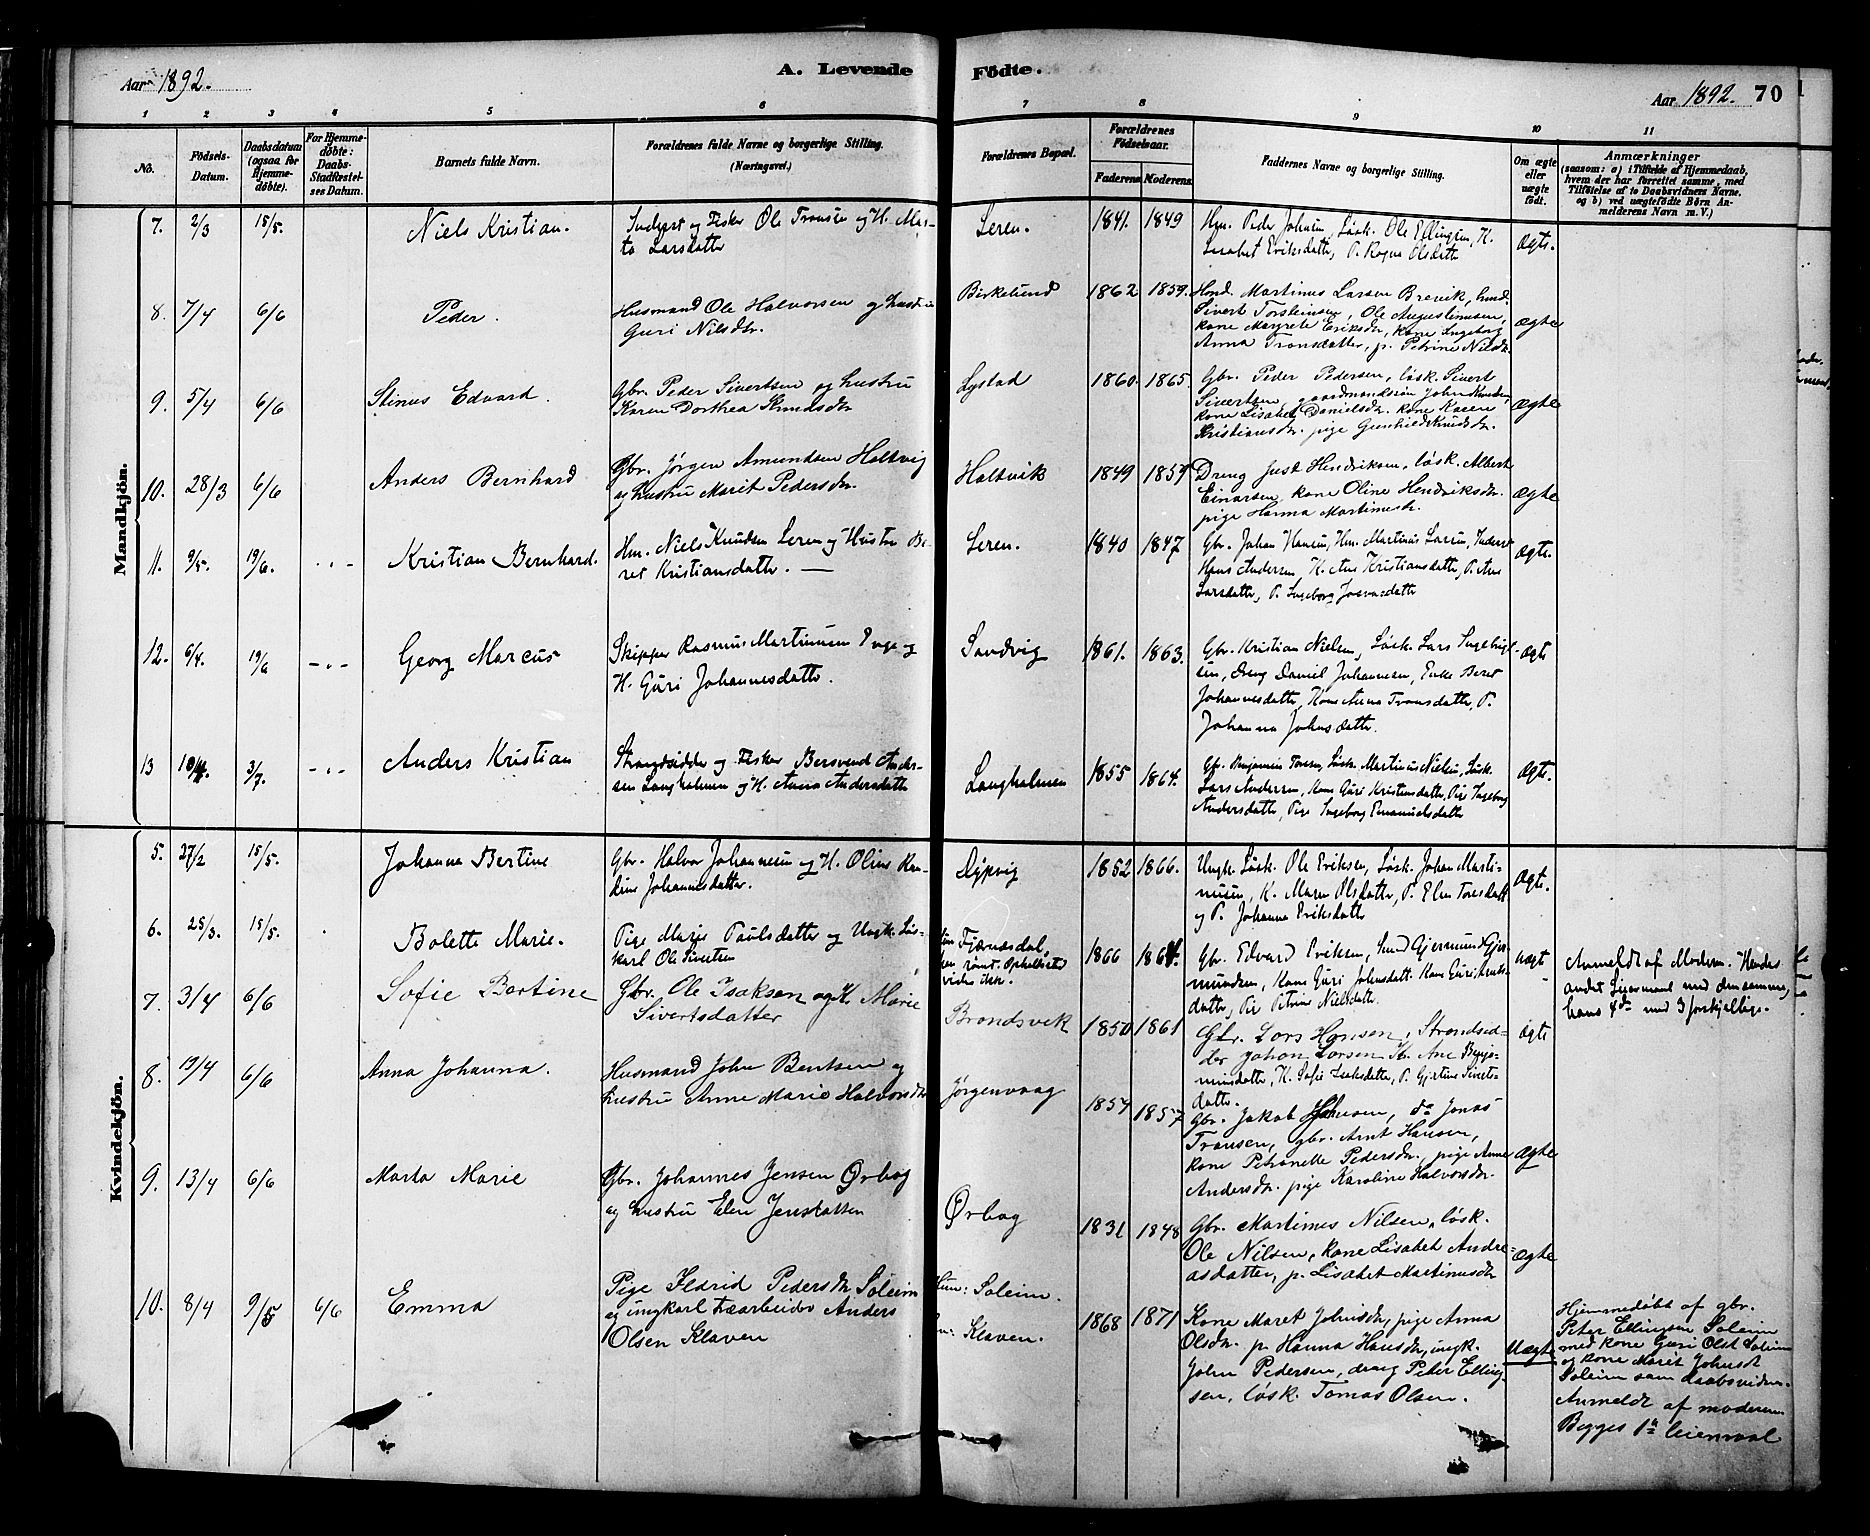 Aar 1892.
A. Levende Födte.
Aar 1892. 70
1 2 3 4 5 6 7 8 9 10 11
No.
Födsels-Datum.
Daabsdatum (ogsaa for Hjemmedöbte).
For Hjemmedöbte: Daabs-Stadfæstelses Datum.
Barnets fulde Navn.
Forældrenes fulde Navne og borgerlige Stilling.
(Næringsvei.)
Forældrenes Bopæl.
Forældrenes Födselsaar.
Faderens Moderens.
Faddernes Navne og borgerlige Stilling.
Om ægte eller uægte födt.
Anmærkninger
(saasom: a) i Tilfælde af Hjemmedaab, hvem der har forrettet samme, med Tilföielse af to Daabsvidners Navne, og b) ved uægtefödte Börn Anmelderens Navn m. V.)
Mandkjön.
7. 2/3 15/5. Niels Kristian.
Inderst og Fisker Ole Tronsen og H. Mar-
ta Larsdatter
Leren. 1841. 1849
Hm. Peder Johnsen, Løsk. Ole Ellingsen, K.
Lisabet Eriksdatter, P. Ragna Olsdatter
Ægte.
8. 7/4 6/6 Peder.
Husmand Ole Halvorsen og hustru
Guri Nilsdtr.
Birkelund 1862 1859.
Husd. Martinus Larsen Brevik, husd.
Sivert Torsteinsen, Ole Augustinusen,
kone Margrete Eriksdr, kone Ingeborg
Anna Tronsdatter, p. Petrine Nilsdr.
Ægte
9. 5/4 6/6 Stinus Edvard.
Gbr. Peder Sivertsen og hustru
Karen Dorthea Knudsdtr
Lystad 1860. 1865.
Gbr. Peder Pedersen, løsk. Sivert
Sivertsen, gaardmandssøn John Knudsen,
kone Lisabet Danielsdr. kone Karen
Kristiansdr. pige Gunhild Knudsdr.
Ægte
10. 28/3 6/6 Anders Bernhard
Gbr. Jørgen Amundsen Holtvig
og hustru Marit Pedersdr.
Holtvik 1849 1857
Dreng Just Hendriksen, løsk. Albert
Einarsen, kone Oline Hendriksdr.
pige Hanna Martinusdr.
Ægte
11. 9/5. 19/6. - " - Kristian Bernhard.
Hm. Niels Knudsen Leren og Hustru Be-
ret Kristiansdatter. —
Leren. 1840 1847
Gbr. Johan Hansen, Hm. Martinus Larsen, Inderst
Hans Andersen, K. Ane Kristiansdatter, P. Ane
Larsdatter, P. Ingeborg
Ægte.
12. 6/4. 19/6 - " - Georg Marcus
Skipper Rasmus Martinusen og
H. Guri Johannesdatter.
Sandvig 1861. 1863.
Gbr. Kristian Nielsen, Løsk. Lars Ingebrigt-
sen, Dreng Daniel Johannesen, Enke Beret
Johannesdatter, Kone Anna Tronsdatter, P.
Johanna Johnsdatter.
Ægte
13 3/7. - " - Anders Kristian
Strandsidder og Fisker Bersvend Ander-
sen Langholmen og H. Anna Andersdatter
Langholmen 1855 1864.
Gbr. Benjamin Toresen, Løsk. Martinus Nielsen, Løsk.
Lars Andersen, Kone Guri Kristensdatter, Pige Ingeborg
Andersdatter, Pige Ingeborg Emanuelsdatter
Ægte.
Kvindekjön.
5. 27/2 15/5. Johanna Bertine
Gbr. Halvor Johannesen og H. Oline Ran-
dine Johannesdatter.
Dypvig 1852 1866.
Ungk. Løsk. Ole Eriksen, Løsk. Johan Marti-
nusen, K. Maren Olsdatter, P. Elen Toresdatter
og P. Johanna Eriksdatter
Ægte.
6. 25/3. 15/5. Bolette Marie.
Pige Marie Paulsdatter og Ungk. Løs-
karl Ole Sivertsen
Fjærusdal,
rømt. Opholdssted
vides ikke.
1866 1864.
Gbr. Edvard Eriksen, Gjermund Gjer-
mundsen, Kone Guri Johnsdatt. Kone Guri
datter, Pige Petrine Nielsdatter.
uægte
Anmeldt af Modren. Hendes
andet Leiermaal med densamme,
hans 4de med 3 forskjellige.
7. 3/4 6/6 Sofie Bertine
Gbr. Ole Isaksen og H. Marie
Sivertsdatter
Brandsvik 1850 1861
Gbr. Lars Hansen, Strandsid-
der Johan Larsen K. Ane Benja-
minsdatter, K. Sofie Isaksdatter, P. Gjertine Siverts-
datter.
ægte
8. 19/4 6/6 Anna Johanna.
Husmand John Bentsen og
hustru Anne Marie Halvorsdtr
Jørgenvaag 1857 1857
Gbr. Jakob Johnsen, do Jonas
Tronsen, gbr. Arnt Hansen,
kone Petronelle Pedersdr., pige Anne
Andersdr. pige Karoline Halvorsdr.
Ægte
9. 13/4 6/6 Marta Marie
Gbr. Johannes Jensen Ørbog
og hustru Elen Jensdatter
Ørbog 1831 1848
Gbr. Martinus Nilsen, løsk.
Ole Nilsen, kone Lisabet Andre-
asdatter, p. Lisabet Martinusdr
Ægte
10. 8/4 9/5 6/6 Emma
Pige Ildrid Pedersdr. Soleim
og ungkarl træarbeider Anders
Olsen Klaven
Hun: Soleim.
Klaven.
1868 1871
Kone Maret Johnsdr, pige Anna
Olsdr. p. Hanna Hansdr, ungk.
John Pedersen, dreng Peter Elling-
sen, løsk. Tomas Olsen.
Uægte
Hjemmedøbt af gbr.
Peter Ellingsen Soleim
med kone Guri Olsd. Soleim
og kone Marit Johnsd
Soleim som daabsvidner.
Anmeldt af moderen
Begges 1ste leiermaal